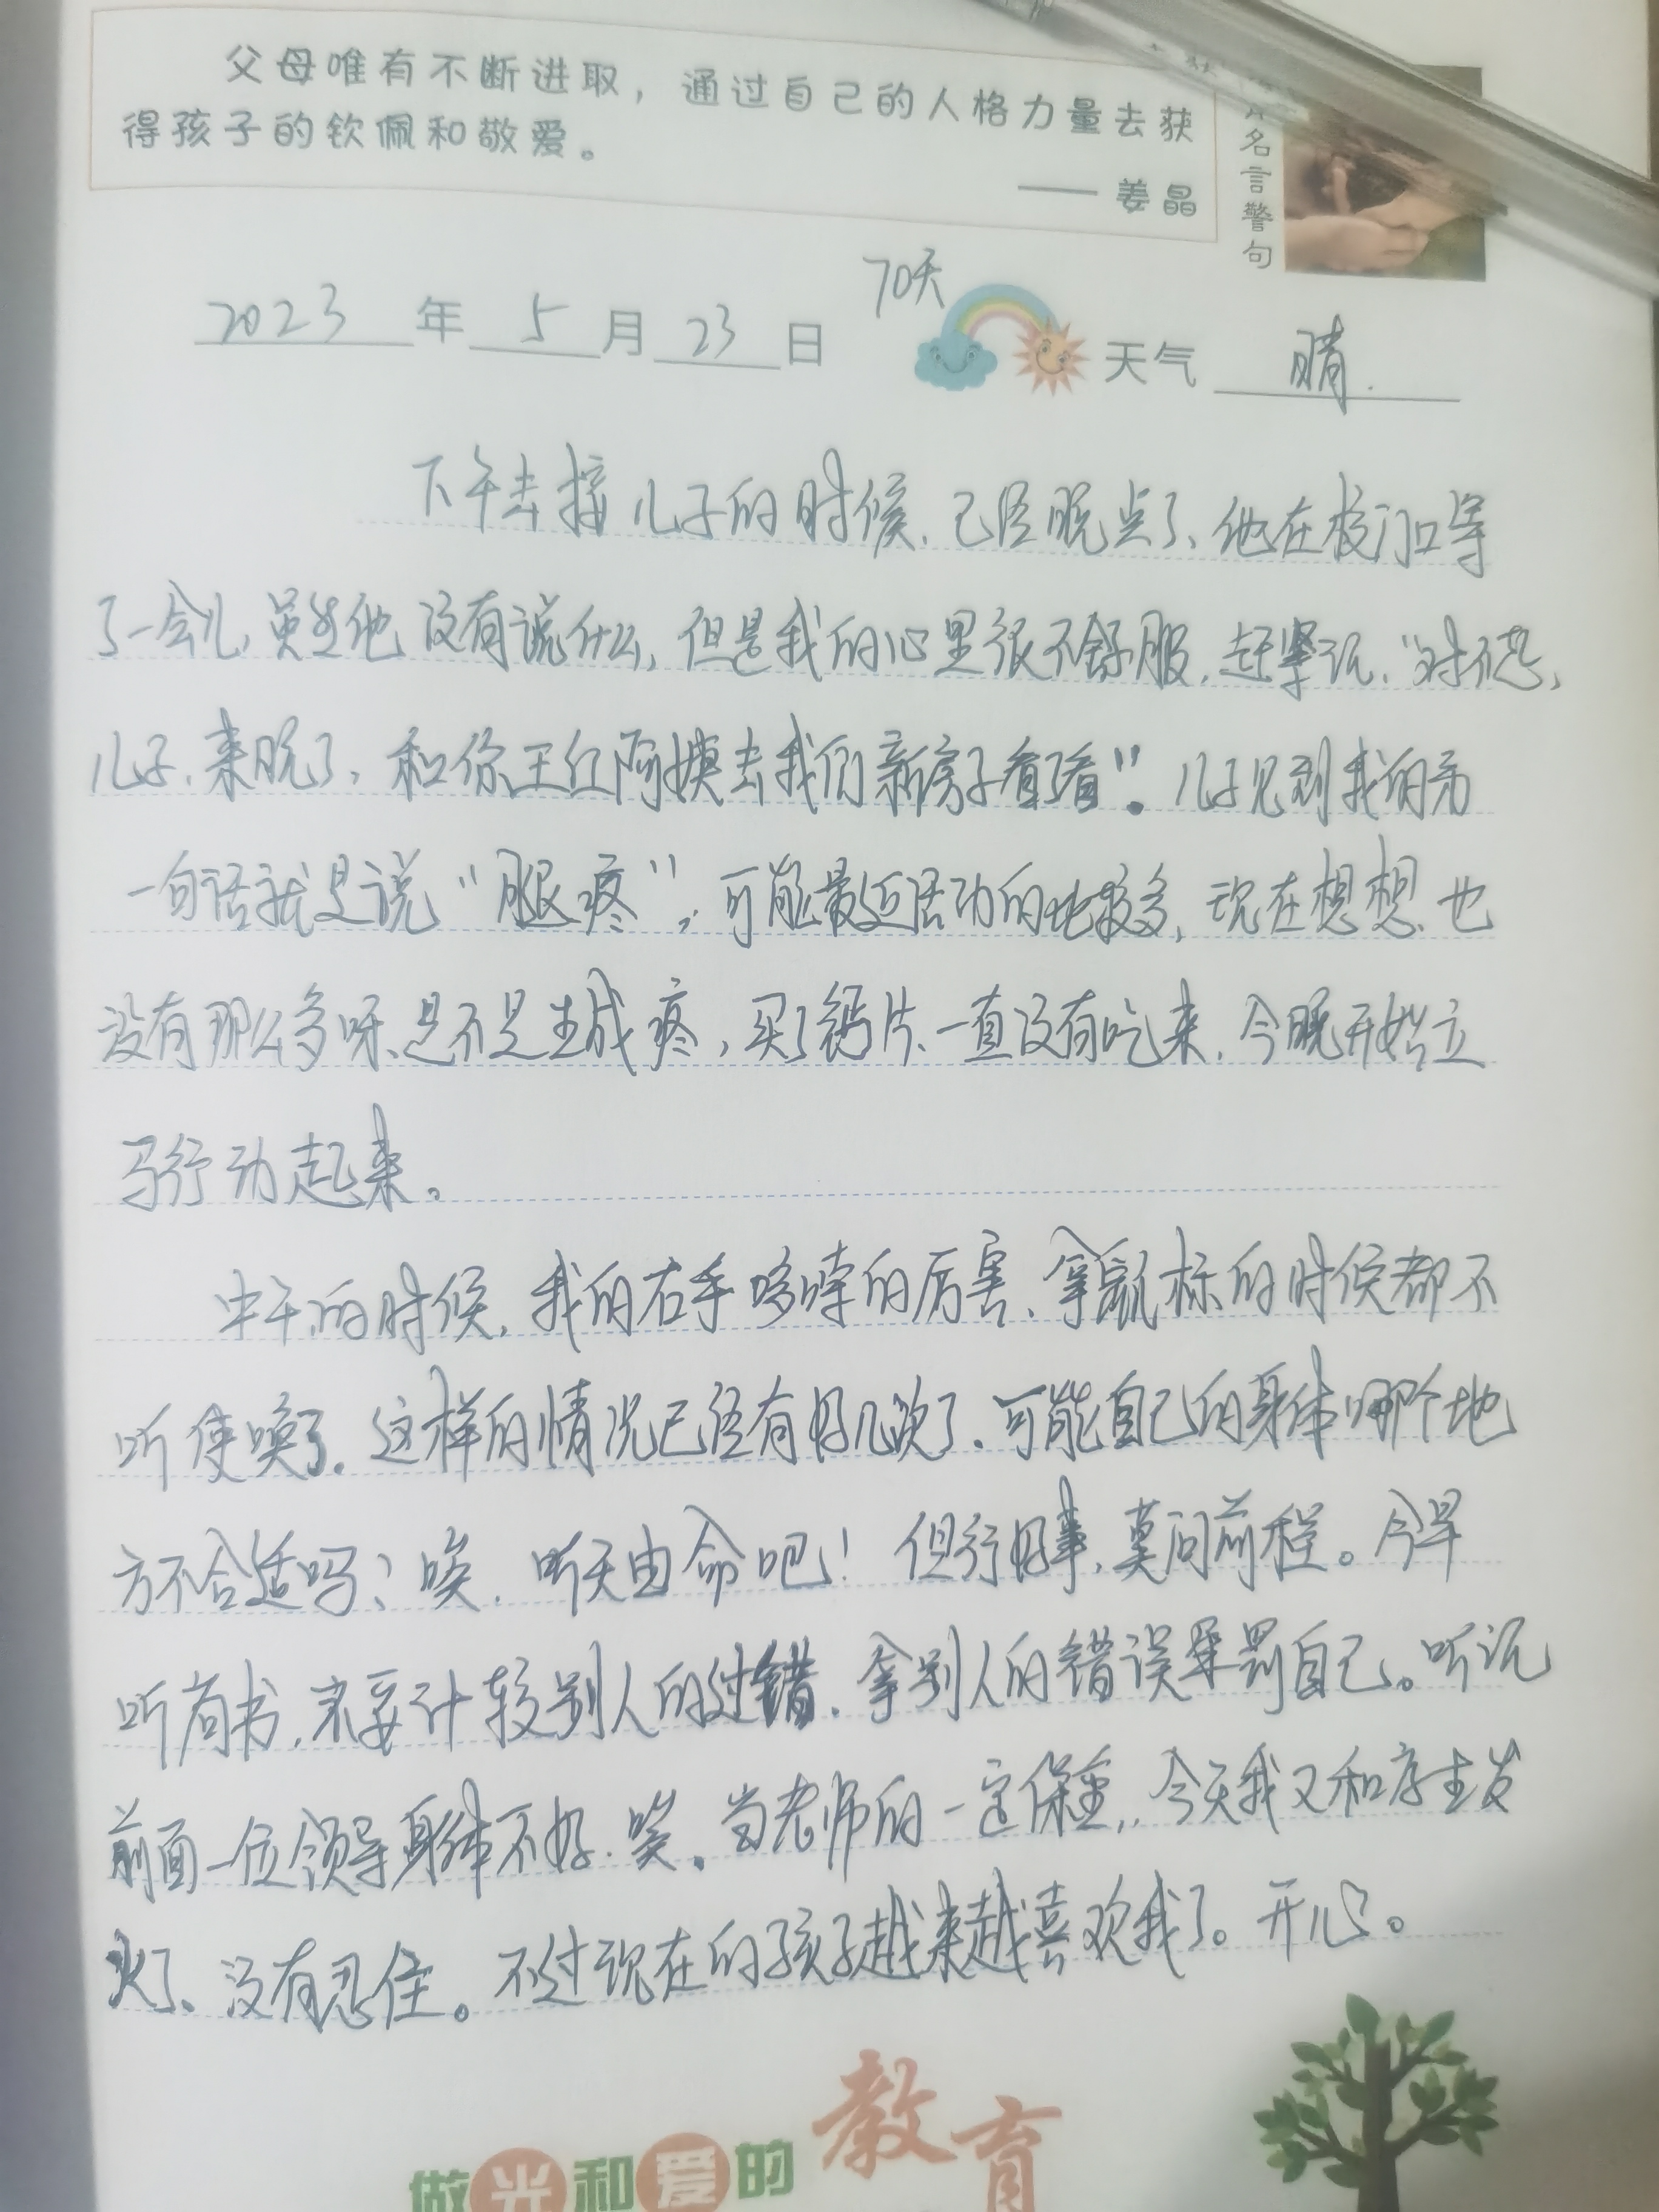 父母唯有不断进取，通过自己的人格力量去获
得孩子的钦佩和敬爱。
——姜晶
名言警句
70天
2023年5月23日 天气 晴.
下午去接儿子的时候，已经晚点了、他在校门口等
了一会儿，虽然他没有说什么，但是我的心里很不舒服，赶紧说，“对不起，
儿子，来晚了，和你王红阿姨去我们新房子看了看”。儿子见到我的第
一句话就是说“腿疼”，可能最近活动的比较多，现在想想，也
没有那么多呀、是不是生成疼，买了钙片、一直没有吃来，今晚开始立
马行动起来。
中午的时候，我的右手哆嗦的厉害、拿鼠标的时候都不
听使唤了。这样的情况已经有好几次了。可能自己的身体哪个地
方不合适吗？唉，听天由命吧！但行好事，莫问前程。今早
听有书，不要计较别人的过错，拿别人的错误来惩罚自己。听说
前面一位领导身体不好，唉。当老师的一定保重，今天我又和学生发
火了、没有忍住。不过现在的孩子越来越喜欢我了。开心。
做光和爱的教育